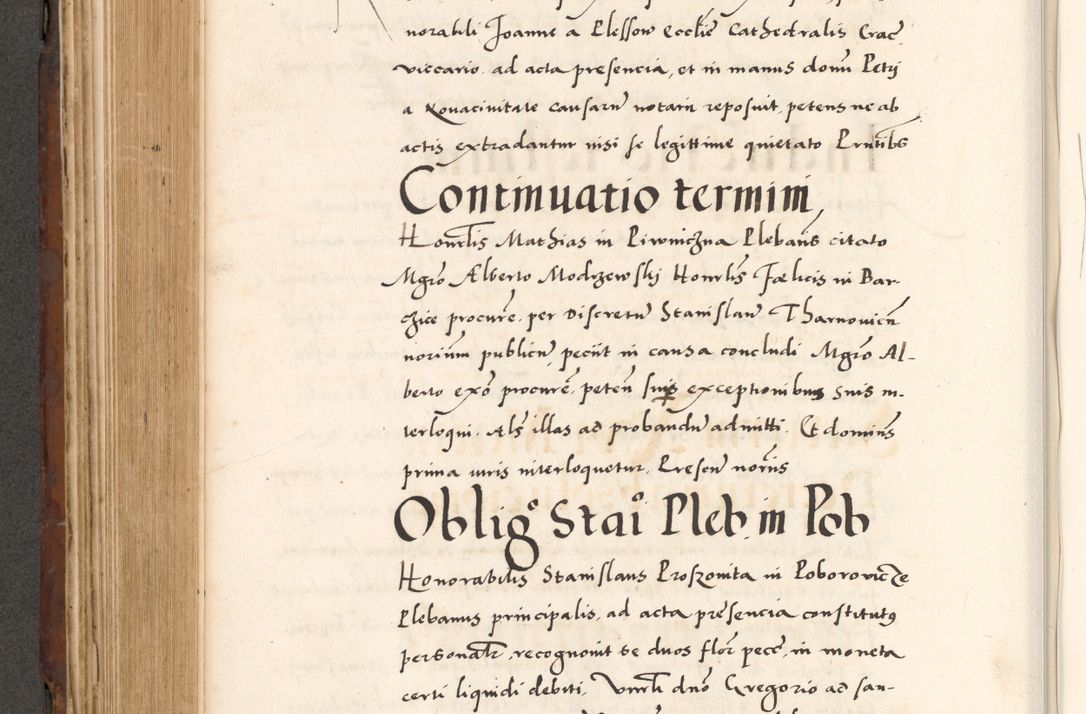 norabili Joanne a Plessow Ecclīe Cathedralis Crac̄
viccario. ad acta presencia, et in manus domī Petri
a Novacivitate causarū notarii reposuit, petens ne ab
actis extradantur nisi se legittime quietato Prntibs
Continuatio termini
Honrlis Mathias in Piwniczna Plebans̄ citato
Mgrō Alberto Modrzewski Honrlīs Fœlicis in Bar-
czice procurē. per Discretū Stanislaū Tharnovien̄
noriūm publicū, peciit in causa concludi Mgrō Al-
berto exō procurē. peteñ super exceptionibus suis in-
terloqui. Als̄ illas ad probandū admitti. Et dominūs
prima iuris interloquetur. Presen̄ norīis
Oblig° Stai° Pleb. in Pob
Honorabilis Stanislaus Proszonita in Poborovicze
Plebanus principalis. ad acta presencia constitutꝰ
personalr̄, recognovit se duos flor̄ pecc̄. in moneta
certi liquidi debiti. Vnrli dnō Gregorio ad san-